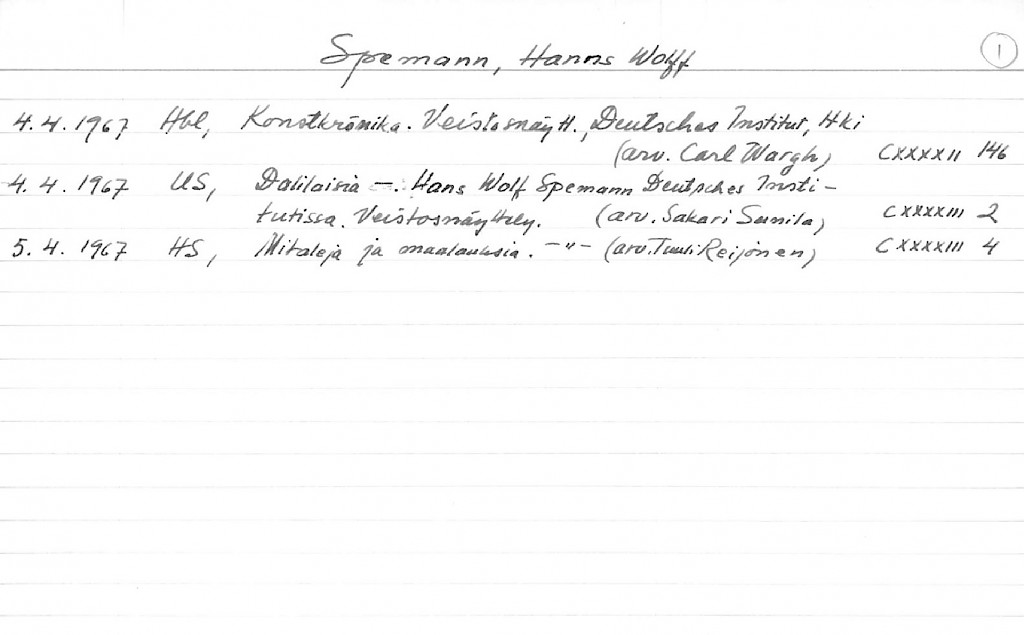 Spemann, Hanns Wolff ①
4.4.1967 Hbl, Konstkrönika. Veistosnäytt., Deutsches Institut, Hki
(arv. Carl Wargh) CXXXXII 146
4.4.1967 US, Dalilaisia –. Hans Wolf Spemann Deutsches Insti-
tutissa. Veistosnäyttely. (arv. Sakari Saunila) CXXXXIII 2
5.4.1967 HS, Mitaleja ja maalauksia. –"– (arv. Tuuli Reijonen) CXXXXIII 4